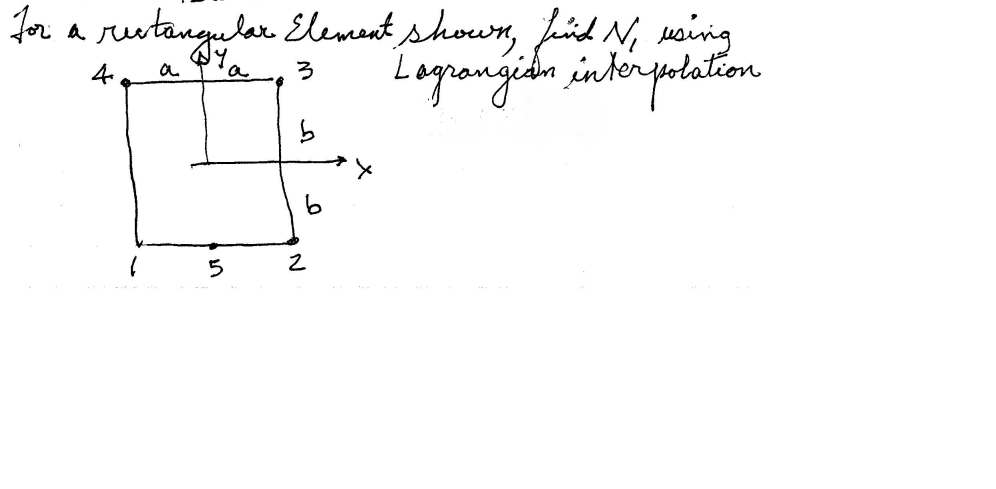 For a rectangular Element shown, find N, using
Lagrangian interpolation
4 a y a 3
b
x
b
1 5 2